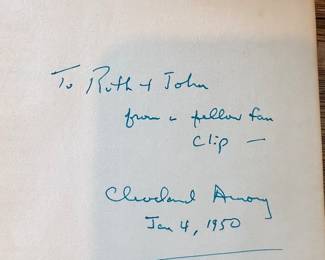 To Ruth & John
from a fellow fan
Clip —
Cleveland Amory
Jan 4, 1950